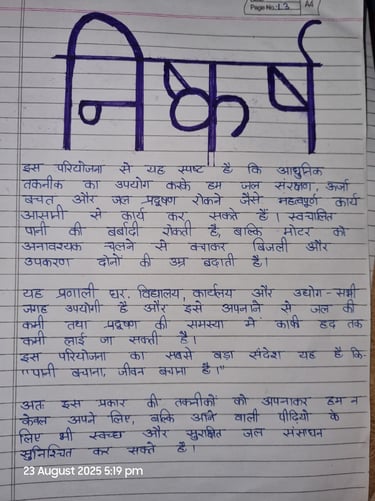 Page No.: 13
A4
निष्कर्ष
इस परियोजना से यह स्पष्ट है कि आधुनिक
तकनीक का उपयोग करके हम जल संरक्षण, ऊर्जा
बचत और जल प्रदूषण रोकने जैसे महत्वपूर्ण कार्य
आसमी से कार्य कर सकते है। स्वचालित
पानी की बर्बादी रोकती है, बल्कि मोटर को
अनावश्यक चलने से बचाकर बिजली और
उपकरण दोनों की उम्र बढाती है।
यह प्रणाली घर, विद्यालय, कार्यलय और उद्योग-सभी
जगह उपयोगी है और इसे अपनाने से जल की
कमी तथा प्रदूषण की समस्या में काफी हद तक
कमी लाई जा सकती है।
इस परियोजना का सबसे बड़ा संदेश यह है कि-
"पानी बचाना, जीवन बचाना है।"
अतः इस प्रकार की तकनीकों को अपनाकर हम न
केवल अपने लिए, बल्कि आने वाली पीढ़ियों के
लिए भी स्वच्छ और सुरक्षित जल संसाधन
सुनिश्चित कर सकते है।
23 August 2025 5:19 pm